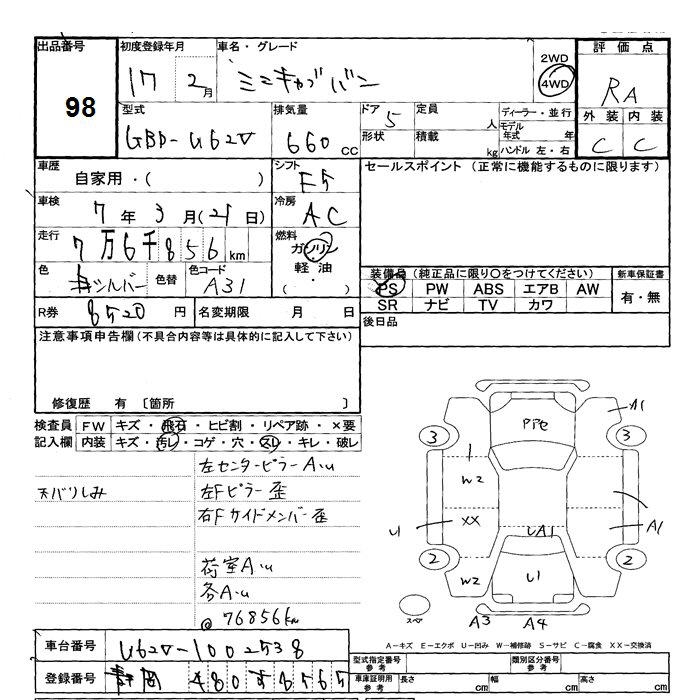 出品番号 初度登録年月 車名・グレード 2WD 評価点
98 17 2月 ミニキャブバン 4WD RA
型式 排気量 ドア 定員 ディーラー・並行 外装 内装
GBD-U62V 660 CC 5 人 モデル年式 年 C C
形状 積載 kg ハンドル 左・右
車歴 シフト セールスポイント (正常に機能するものに限ります)
自家用・( ) F5
車検 7年3月(21日) 冷房 AC
走行 7万6千856km 燃料 ガソリン
軽油
( ・ )
色 シルバー 色替 色コード A31
装備品 (純正品に限り○をつけてください) 新車保証書
PS PW ABS エアB AW 有・無
SR ナビ TV カワ
R券 8520円 名変期限 月 日
後日品
注意事項申告欄(不具合内容等は具体的に記入して下さい)
修復歴 有 〔箇所 〕
検査員 FW キズ・飛石・ヒビ割・リペア跡・×要
記入欄 内装 キズ・汚レ・コゲ・穴・スレ・キレ・破レ
左センターピラーA.u
天バリしみ 左Fピラー歪
右Fサイドメンバー歪
荷室A.u
各A.u
@76856km
Pite A1
3 3
W2
XX UA1 A1
U1
2 2
W2 U1
スペア A3 A4
A－キズ E－エクボ U－凹み W－補修跡 S－サビ C－腐食 XX－交換済
車台番号 U62V-1002538
型式指定番号 参考 類別区分番号 参考
登録番号 静岡 480 す8565
車庫証明用 参考 長さ cm 幅 cm 高さ cm